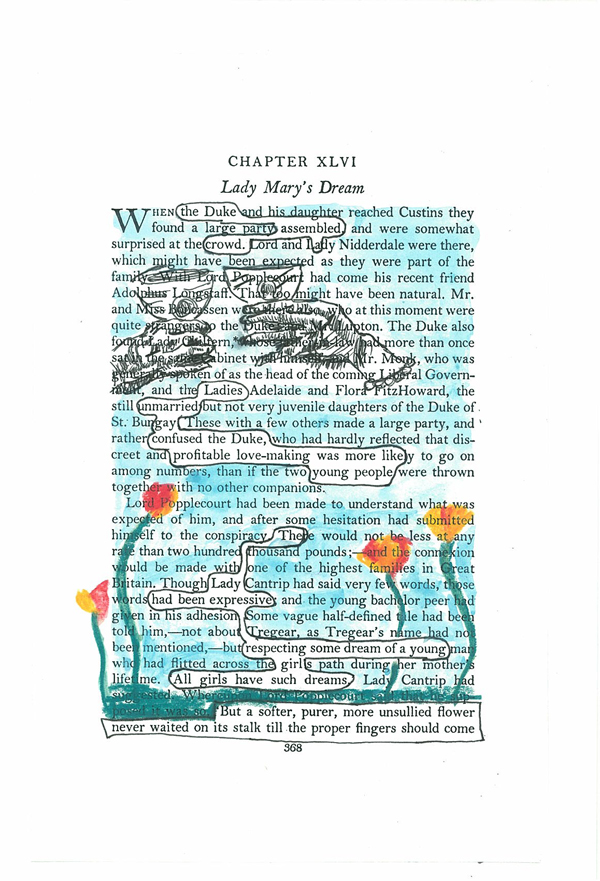 CHAPTER XLVI
Lady Mary's Dream
WHEN the Duke and his daughter reached Custins they
found a large party assembled, and were somewhat
surprised at the crowd. Lord and Lady Nidderdale were there,
which might have been expected as they were part of the
family. With Lord Popplecourt had come his recent friend
Adolphus Longstaff. That too might have been natural. Mr.
and Miss Boncassen were there also, who at this moment were
quite strangers to the Duke and Mr. Lupton. The Duke also
found Lady Chiltern, whose father-in-law had more than once
sat in the same cabinet with himself, and Mr. Monk, who was
generally spoken of as the head of the coming Liberal Govern-
ment, and the Ladies Adelaide and Flora FitzHoward, the
still unmarried but not very juvenile daughters of the Duke of
St. Bungay. These with a few others made a large party, and
rather confused the Duke, who had hardly reflected that dis-
creet and profitable love-making was more likely to go on
among numbers, than if the two young people were thrown
together with no other companions.
Lord Popplecourt had been made to understand what was
expected of him, and after some hesitation had submitted
himself to the conspiracy. There would not be less at any
rate than two hundred thousand pounds;—and the connexion
would be made with one of the highest families in Great
Britain. Though Lady Cantrip had said very few words, those
words had been expressive; and the young bachelor peer had
given in his adhesion. Some vague half-defined tale had been
told him,—not about Tregear, as Tregear's name had not
been mentioned,—but respecting some dream of a young man
who had flitted across the girl's path during her mother's
lifetime. All girls have such dreams, Lady Cantrip had
suggested. Whereupon Lord Popplecourt said that he sup-
posed it was so. But a softer, purer, more unsullied flower
never waited on its stalk till the proper fingers should come
368